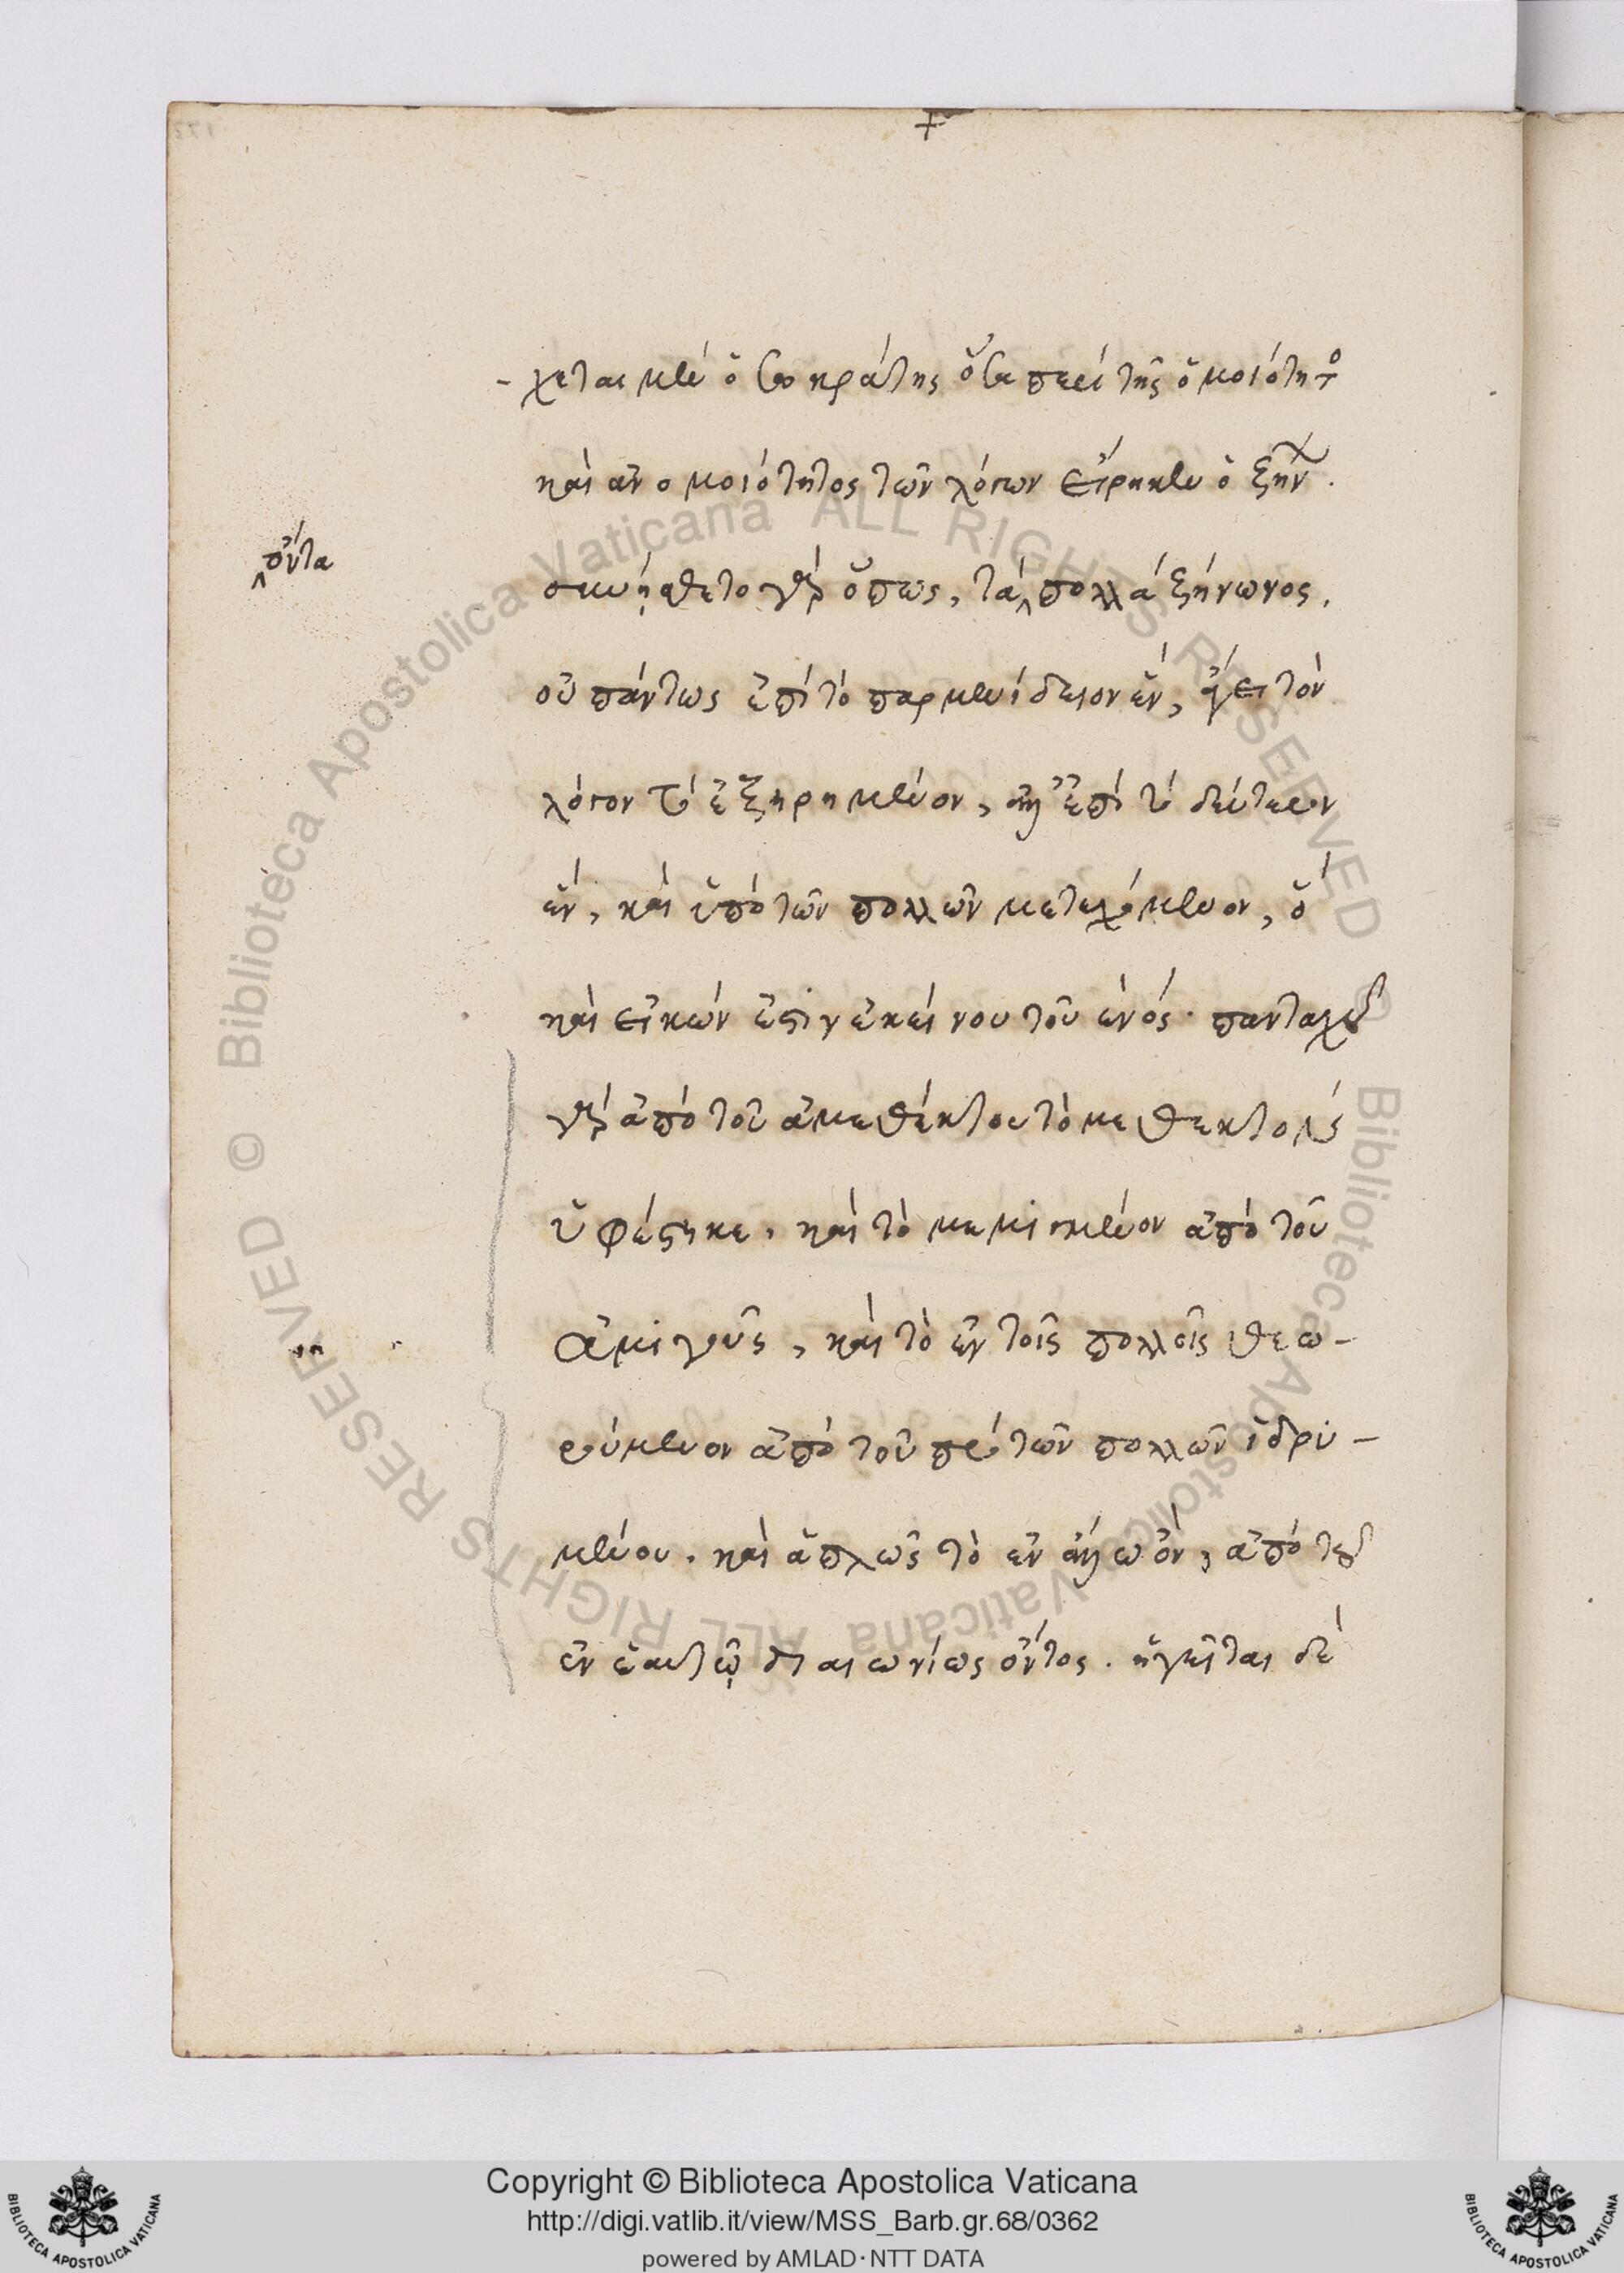 +
-χεται μὲν ὁ σωκράτης ὅσα περὶ τῆς ὁμοιότητο
καὶ ἀνομοιότητος τῶν λόγων εἴρηκεν ὁ ξήν.
πάντα
σκυήπθετο γὰρ ὅπως, τὰ πολλὰ ξήνωνος.
οὐ πάντως ἐπὶ τὸ παρμενίδειον ἕν, ἦγε τὸν
λόγον τὸ ἐξῃρημένον, ἀλλ' ἐπὶ τὸ δεύτερον
ἕν, καὶ ὑπὸ τῶν πολλῶν μετεχόμενον, ὃ
καὶ εἰκών ἐστιν ἐκείνου τοῦ ἑνός· πανταχοῦ
γὰρ ἀπὸ τοῦ ἀμεθέκτου τὸ μεθεκτὸν
ὑφέστηκε. καὶ τὸ μεμιγμένον ἀπὸ τοῦ
ἀμιγοῦς, καὶ τὸ ἐν τοῖς πολλοῖς θεω-
ρούμενον ἀπὸ τοῦ πρὸ τῶν πολλῶν ἱδρυ-
μένου. καὶ ἁπλῶς τὸ ἐν ἄλλῳ ὂν, ἀπὸ τοῦ
ἐν ἑαυτῷ διαιωνίως ὄντος. ἡγεῖται δὲ
Copyright © Biblioteca Apostolica Vaticana
http://digi.vatlib.it/view/MSS_Barb.gr.68/0362
powered by AMLAD·NTT DATA
BIBLIOTECA APOSTOLICA VATICANA
BIBLIOTECA APOSTOLICA VATICANA
© Biblioteca Apostolica Vaticana ALL RIGHTS RESERVED
© Biblioteca Apostolica Vaticana ALL RIGHTS RESERVED